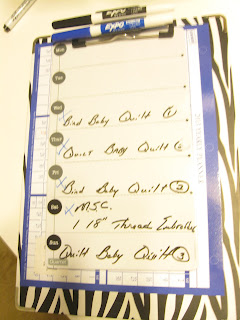 EXPO
EXPO
Mon
Tue
Wed
Bind Baby Quilt 1
Thur
Quilt Baby Quilt 2
Fri
Bind Baby Quilt 2
Sat
M.S.C.
1 18" Thread
Sun
Quilt Baby Quilt 3